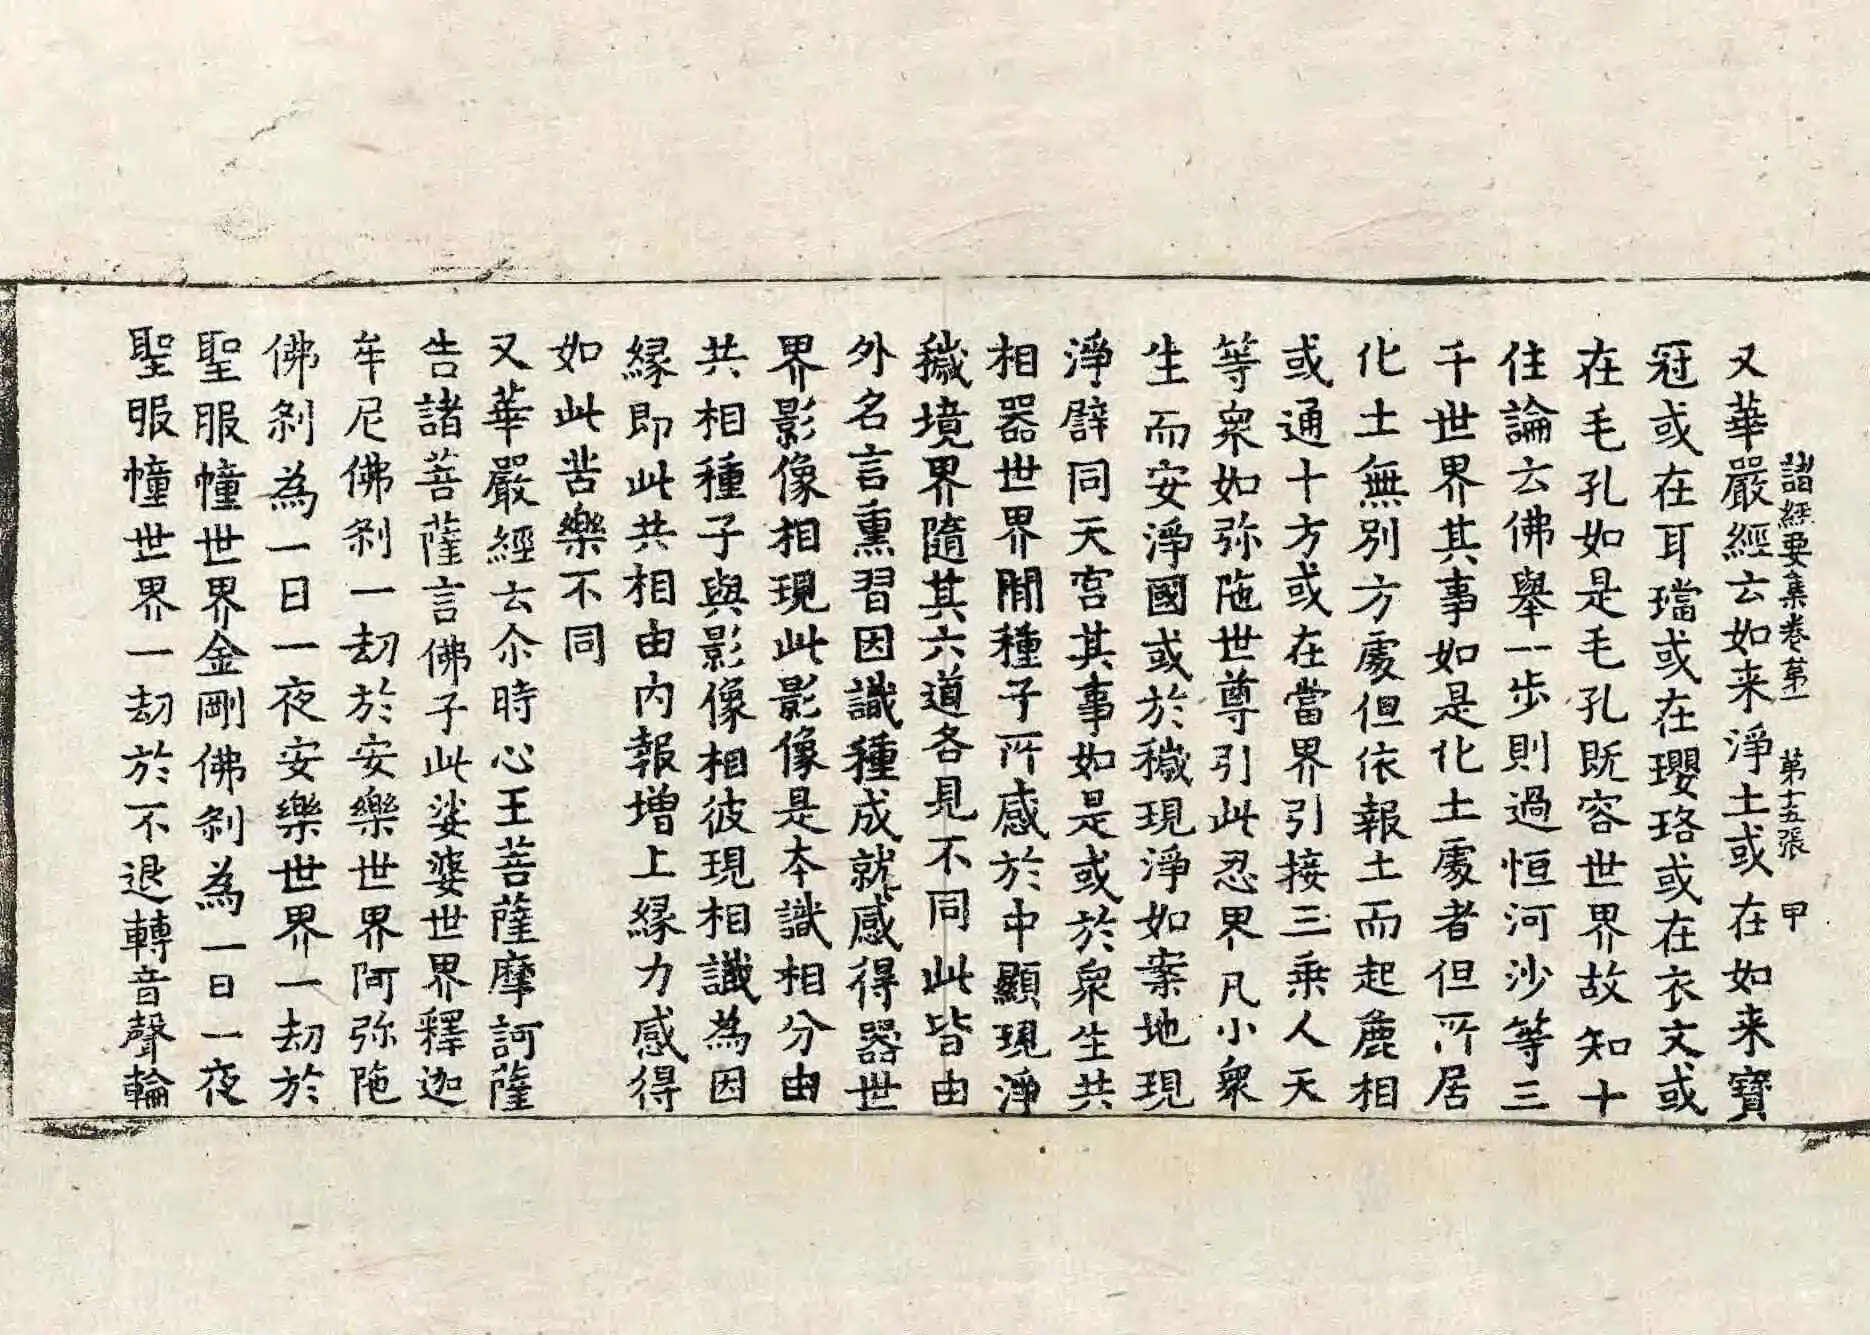 諸經要集卷第一　第十五張　甲
又華嚴經云如来淨土或在如来寶
冠或在耳璫或在瓔珞或在衣文或
在毛孔如是毛孔既容世界故知十
住論云佛舉一步則過恒河沙等三
千世界其事如是化土處者但所居
化土無別方處但依報土而起麁相
或通十方或在當界引接三乗人天
等衆如弥陁世尊引此忍界凡小衆
生而安淨國或於穢現淨如案地現
淨礕同天宮其事如是或於衆生共
相器世界間種子所感於中顯現淨
穢境界隨其六道各見不同此皆由
外名言熏習因識種成就感得器世
界影像相現此影像是本識相分由
共相種子與影像相彼現相識為因
縁即此共相由内報増上縁力感得
如此苦樂不同
又華嚴經云尒時心王菩薩摩訶薩
告諸菩薩言佛子此娑婆世界釋迦
牟尼佛刹一劫於安樂世界阿弥陁
佛刹為一日一夜安樂世界一劫於
聖服幢世界金剛佛刹為一日一夜
聖服幢世界一劫於不退轉音聲輪